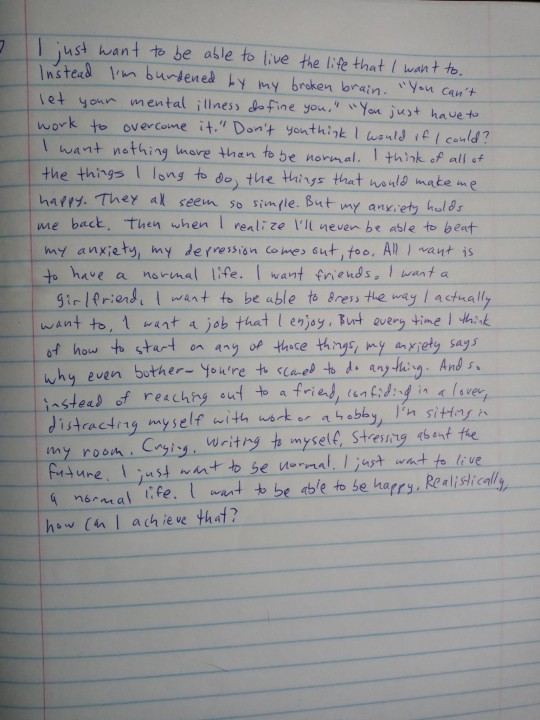 I just want to be able to live the life that I want to.
Instead I'm burdened by my broken brain. "You can't
let your mental illness define you." "You just have to
work to overcome it." Don't you think I would if I could?
I want nothing more than to be normal. I think of all of
the things I long to do, the things that would make me
happy. They all seem so simple. But my anxiety holds
me back. Then when I realize I'll never be able to beat
my anxiety, my depression comes out, too. All I want is
to have a normal life. I want friends. I want a
girlfriend. I want to be able to dress the way I actually
want to. I want a job that I enjoy. But every time I think
of how to start on any of those things, my anxiety says
why even bother- You're to scared to do anything. And so
instead of reaching out to a friend, confiding in a lover,
distracting myself with work or a hobby, I'm sitting in
my room. Crying. Writing to myself. Stressing about the
future. I just want to be normal. I just want to live
a normal life. I want to be able to be happy. Realistically,
how can I achieve that?